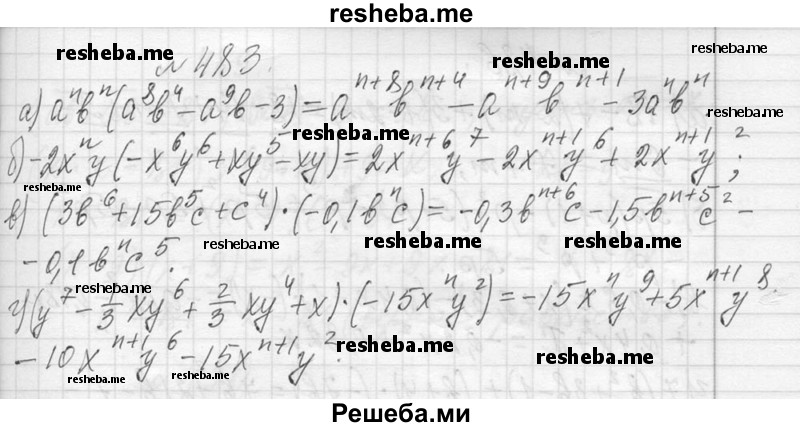 resheba.me
resheba.me № 483. resheba.me resheba.me
а) aⁿbⁿ(a⁸b⁴ - a⁹b - 3) = aⁿ⁺⁸bⁿ⁺⁴ - aⁿ⁺⁹bⁿ⁺¹ - 3aⁿbⁿ
resheba.me resheba.me
б) -2xⁿy(-x⁶y⁶ + xy⁵ - xy) = 2xⁿ⁺⁶y⁷ - 2xⁿ⁺¹y⁶ + 2xⁿ⁺¹y²;
resheba.me resheba.me
в) (3b⁶ + 15b⁵c + c⁴)·(-0,1bⁿc) = -0,3bⁿ⁺⁶c - 1,5bⁿ⁺⁵c² -
resheba.me resheba.me
- 0,1bⁿc⁵.
resheba.me
г) (y⁷ - 1/3 xy⁶ + 2/3 xy⁴ + x)·(-15xⁿy²) = -15xⁿy⁹ + 5xⁿ⁺¹y⁸
- 10xⁿ⁺¹y⁶ - 15xⁿ⁺¹y².
resheba.me resheba.me resheba.me resheba.me
Решеба.ми